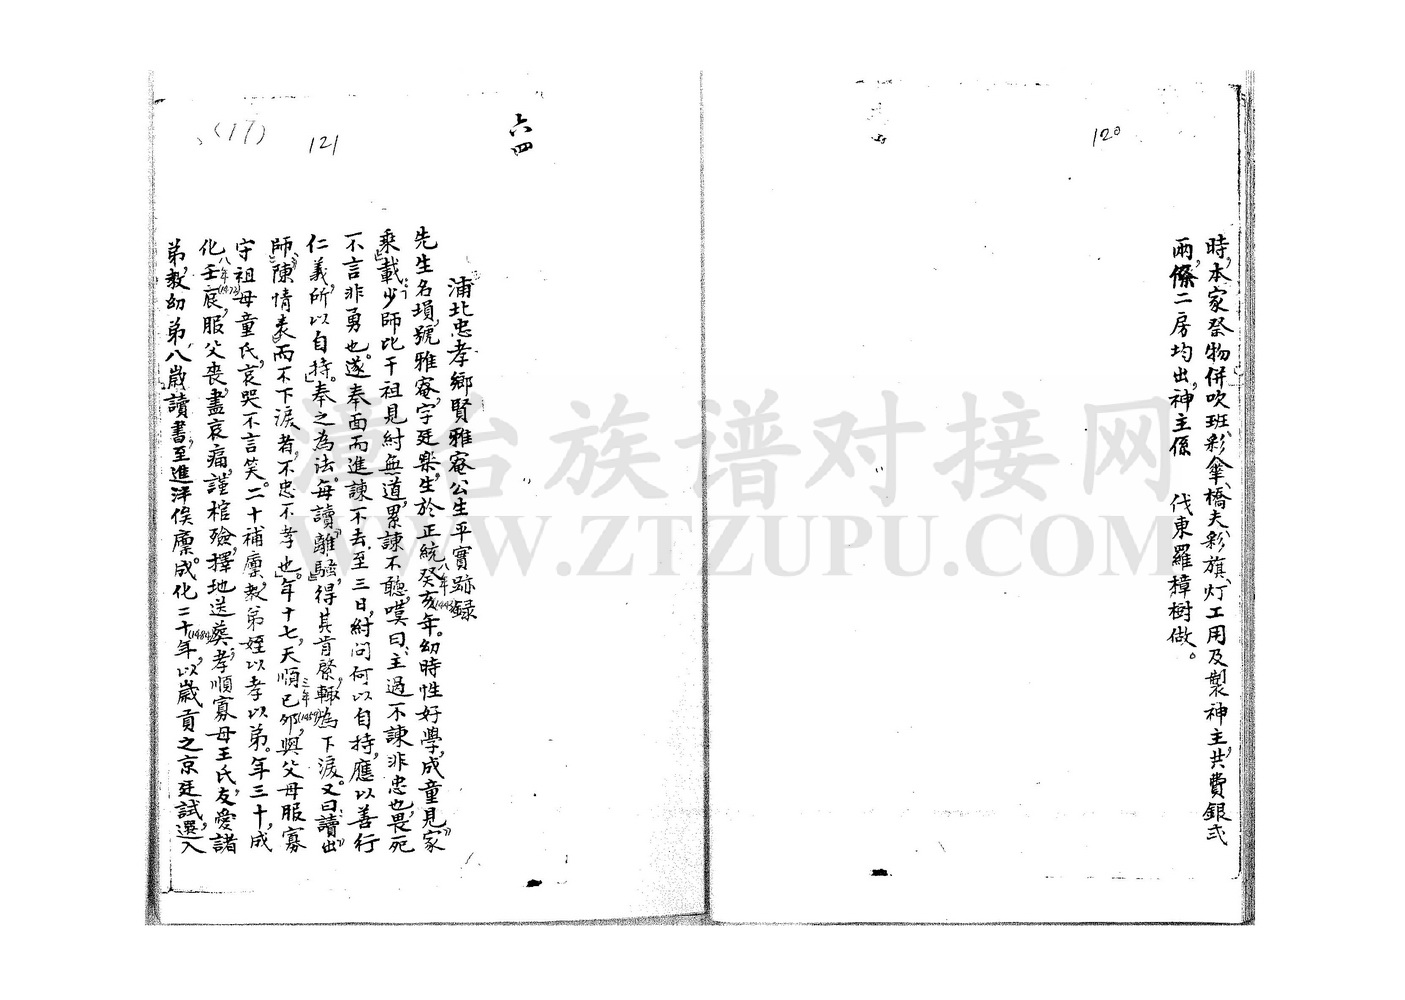 120
時,本家祭物併吹班、彩傘、橋夫、彩旗、灯工用及製神主,共費銀弍
兩,條二房均出,神主係 伐東羅樟樹做。
六四
121
(17)
浦北忠孝鄉賢雅菴公生平實跡錄
先生名塤,號雅菴,字廷樂,生於正統癸亥年。幼時性好學,成童見《家
八年(1443)
乘》載少師比干祖見紂無道,累諫不聽,嘆曰:主過不諫非忠也,畏死
不言非勇也。遂奉面而進諫不去,至三日,紂問何以自持,應以善行
仁義,所以自持。奉之為法。每讀《離騷》,得其肯綮,輙為下淚。又曰:讀《出
師》《陳情表》而不下淚者,不忠不孝也。年十七,天順己夘,與父母服寡
三年(1459)
守祖母童氏,哀哭不言笑。二十補廩,教弟姪以孝以弟。年三十,成
化壬宸,服父喪,盡哀痛,謹棺殮,擇地送葬,孝順寡母王氏,友愛諸
八年(1472)
弟,教幼弟,八歲讀書,至進泮俟廩。成化二十年,以歲貢之京廷試,選入
(1484)
漳台族谱对接网
WWW.ZTZUPU.COM